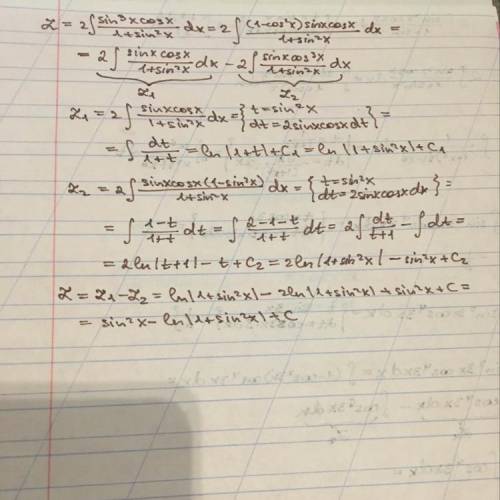 I = 2∫ sin³x cosx / 1+sin²x dx = 2∫ (1-cos²x) sinx cosx / 1+sin²x dx =
= 2∫ sinx cosx / 1+sin²x dx - 2∫ sinx cos³x / 1+sin²x dx
I₁ I₂
I₁ = 2∫ sinx cosx / 1+sin²x dx = { t = sin²x
dt = 2sinx cosx dt } =
= ∫ dt / 1+t = ln|1+t| + C₁ = ln|1+sin²x| + C₁
I₂ = 2∫ sinx cosx (1-sin²x) / 1+sin²x dx = { t = sin²x
dt = 2sinx cosx dx } =
= ∫ 1-t / 1+t dt = ∫ 2-1-t / 1+t dt = 2∫ dt / t+1 - ∫dt =
= 2ln|t+1| - t + C₂ = 2ln|1+sin²x| - sin²x + C₂
I = I₁ - I₂ = ln|1+sin²x| - 2ln|1+sin²x| + sin²x + C =
= sin²x - ln|1+sin²x| + C